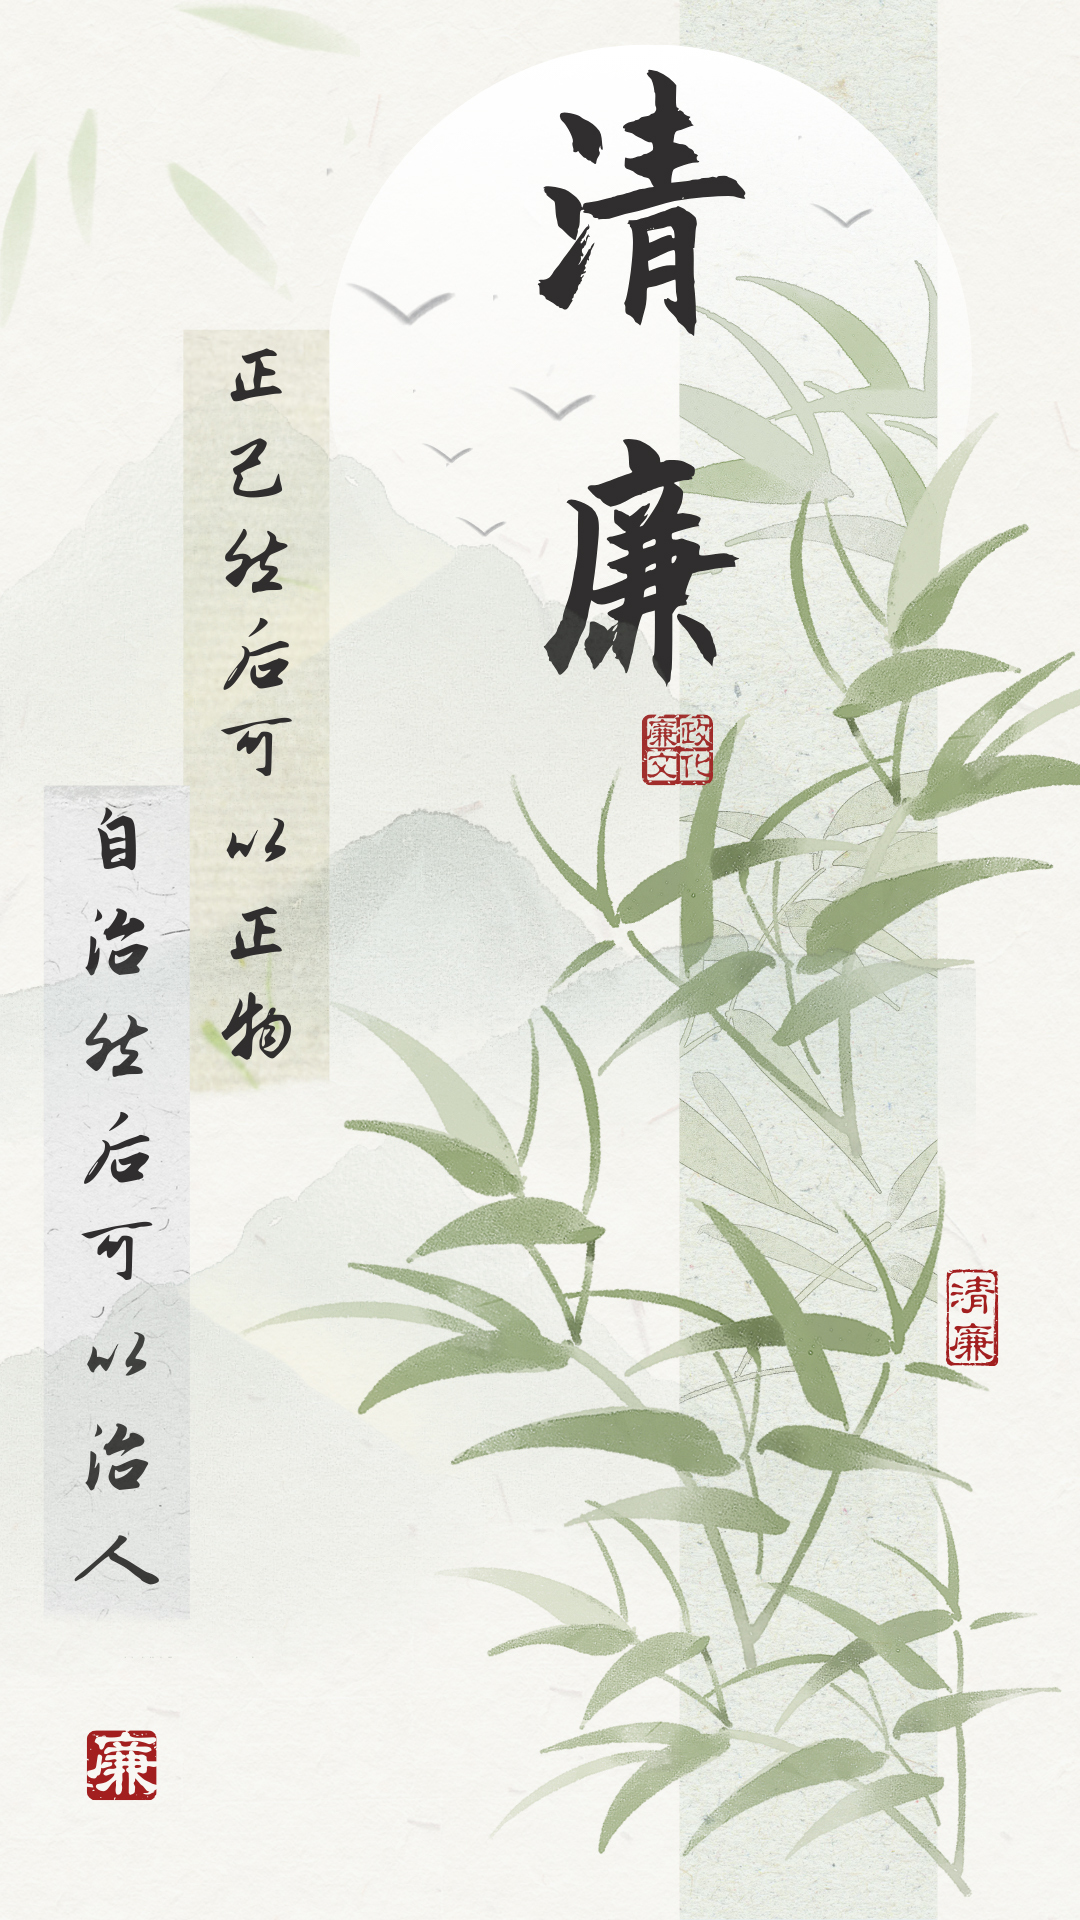 清廉
廉政
文化
正己然后可以正物
自治然后可以治人
清廉
廉